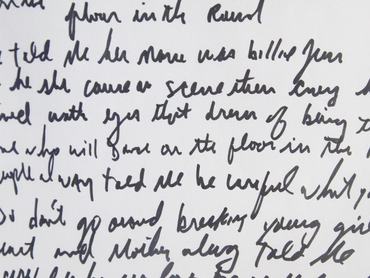 floor in the Round
told me her name was billie Jean
he she caused a scene then every
with eyes that dream of being
who will Dance on the floor in the
people always told me be careful what
don't go around breaking young
and Mother always told me